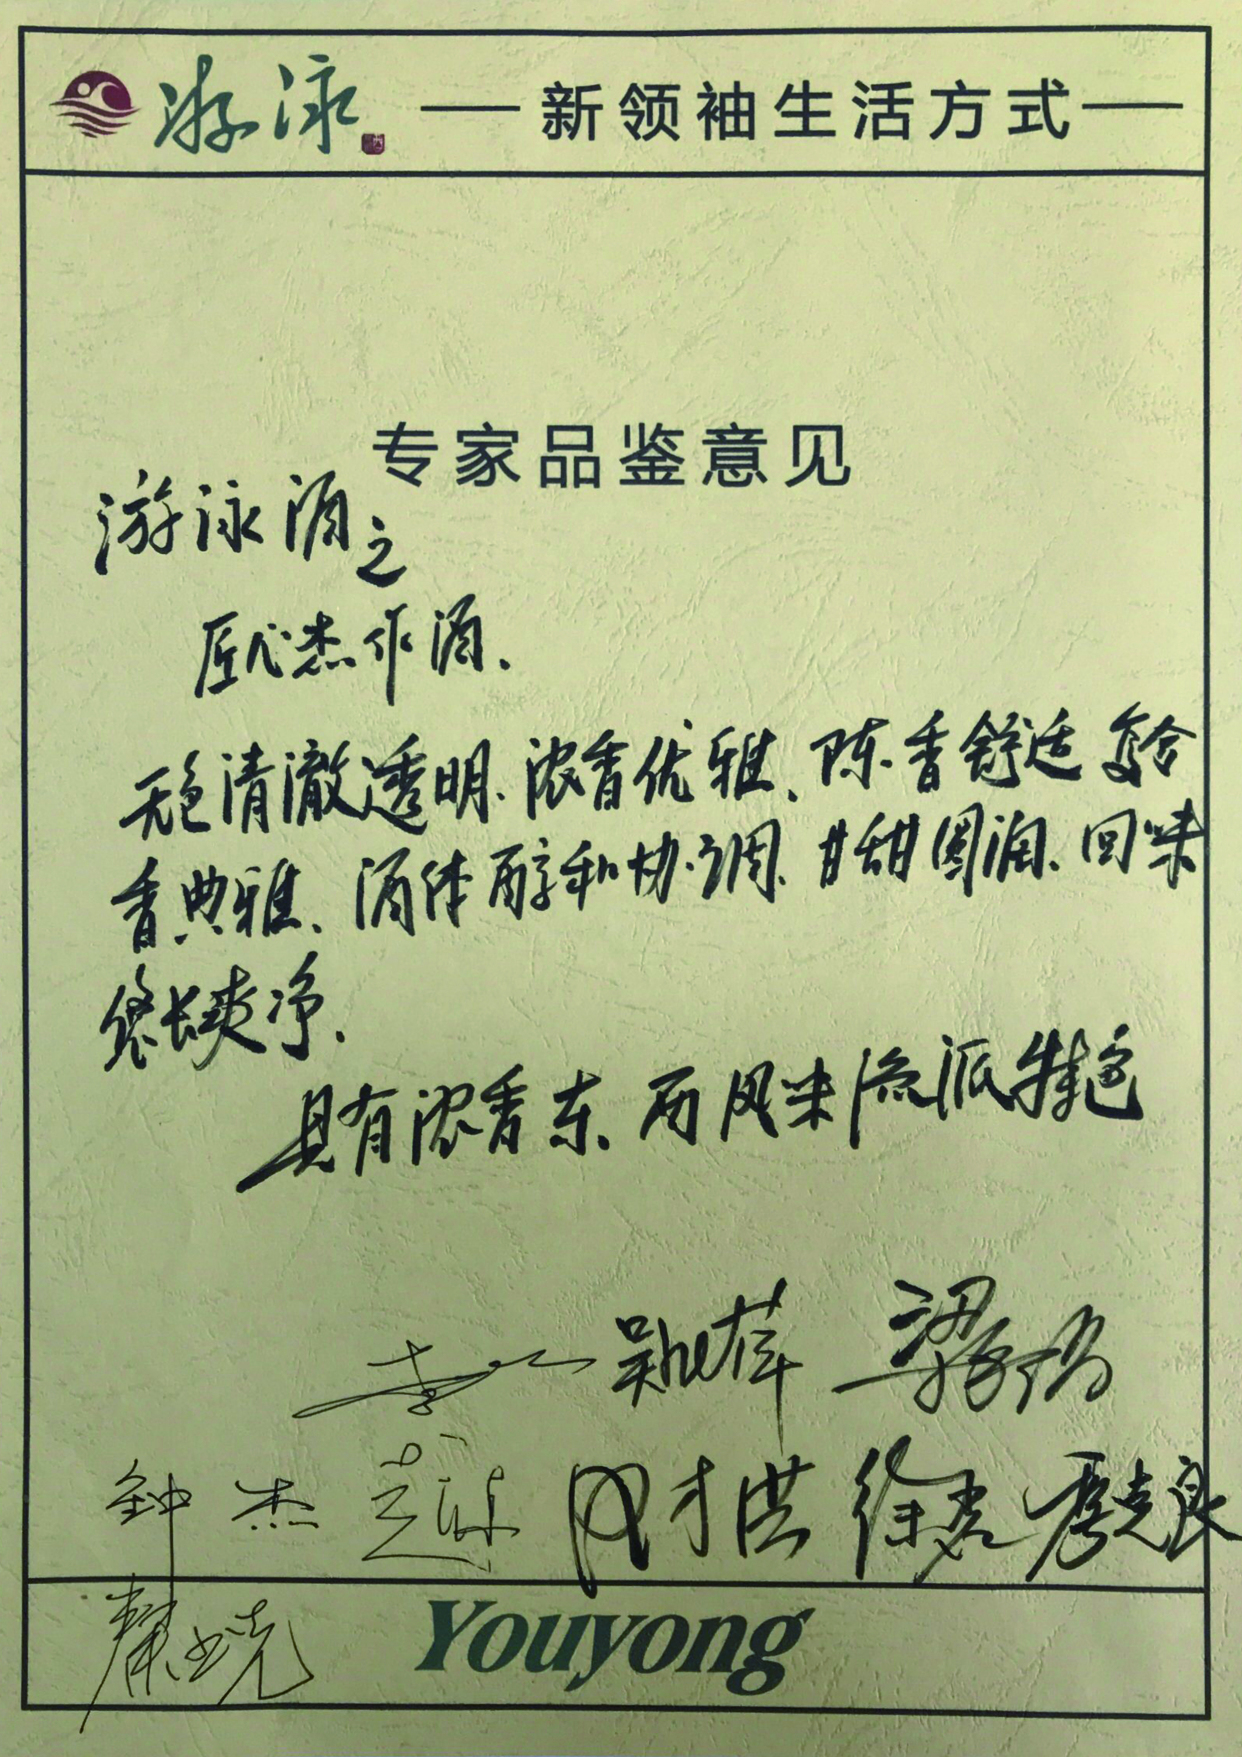 游泳 —新领袖生活方式—
专家品鉴意见
游泳酒之
匠心杰作酒.
无色清澈透明、浓香优雅、陈香舒适 复合
香典雅、酒体醇和协调、甘甜圆润、回味
悠长爽净.
具有浓香东、西风味流派特色
钟杰 徐岩 季克良
Youyong